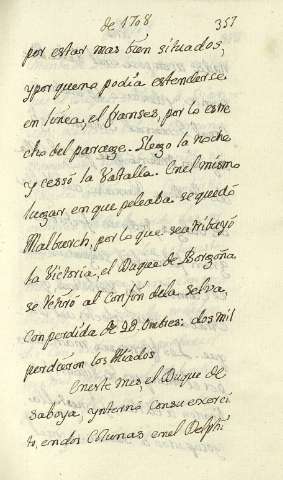 de 1708
357
por estar mas bien situados,
y por que no podia estenderce
en linea, el franses, por lo estre
cho del parage. Llego la noche
y cessó la Vatalla. En el mismo
lugar en que peleaba se quedó
Malburch, por lo que se atribuyó
la Victoria, el Duque de Borgoña
se retiró al Confin de la selva,
con perdida de 9 D. ombres: dos mil
perdieron los Aliados
En este mes el Duque de
Saboya, ynternó con su exerci
to, en dos Colunas en el Delphi